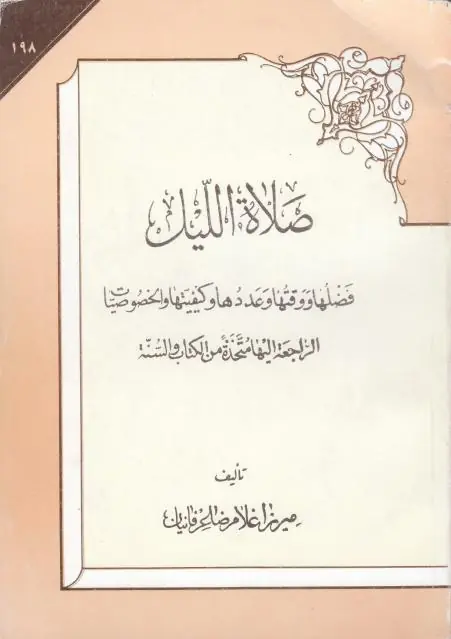 ١٩٨
صَلَاة اللَّيل
فَضلُها وَوَقتُها وَعَدَدُها وَكَيفيَّتها وَالخصُوصيَّات
الرّاجعَة إليهَا مُتَّخذَةً منَ الكتَاب وَالسُّنَّة
تأليف
ميرزا غلامرضا عرفانيان